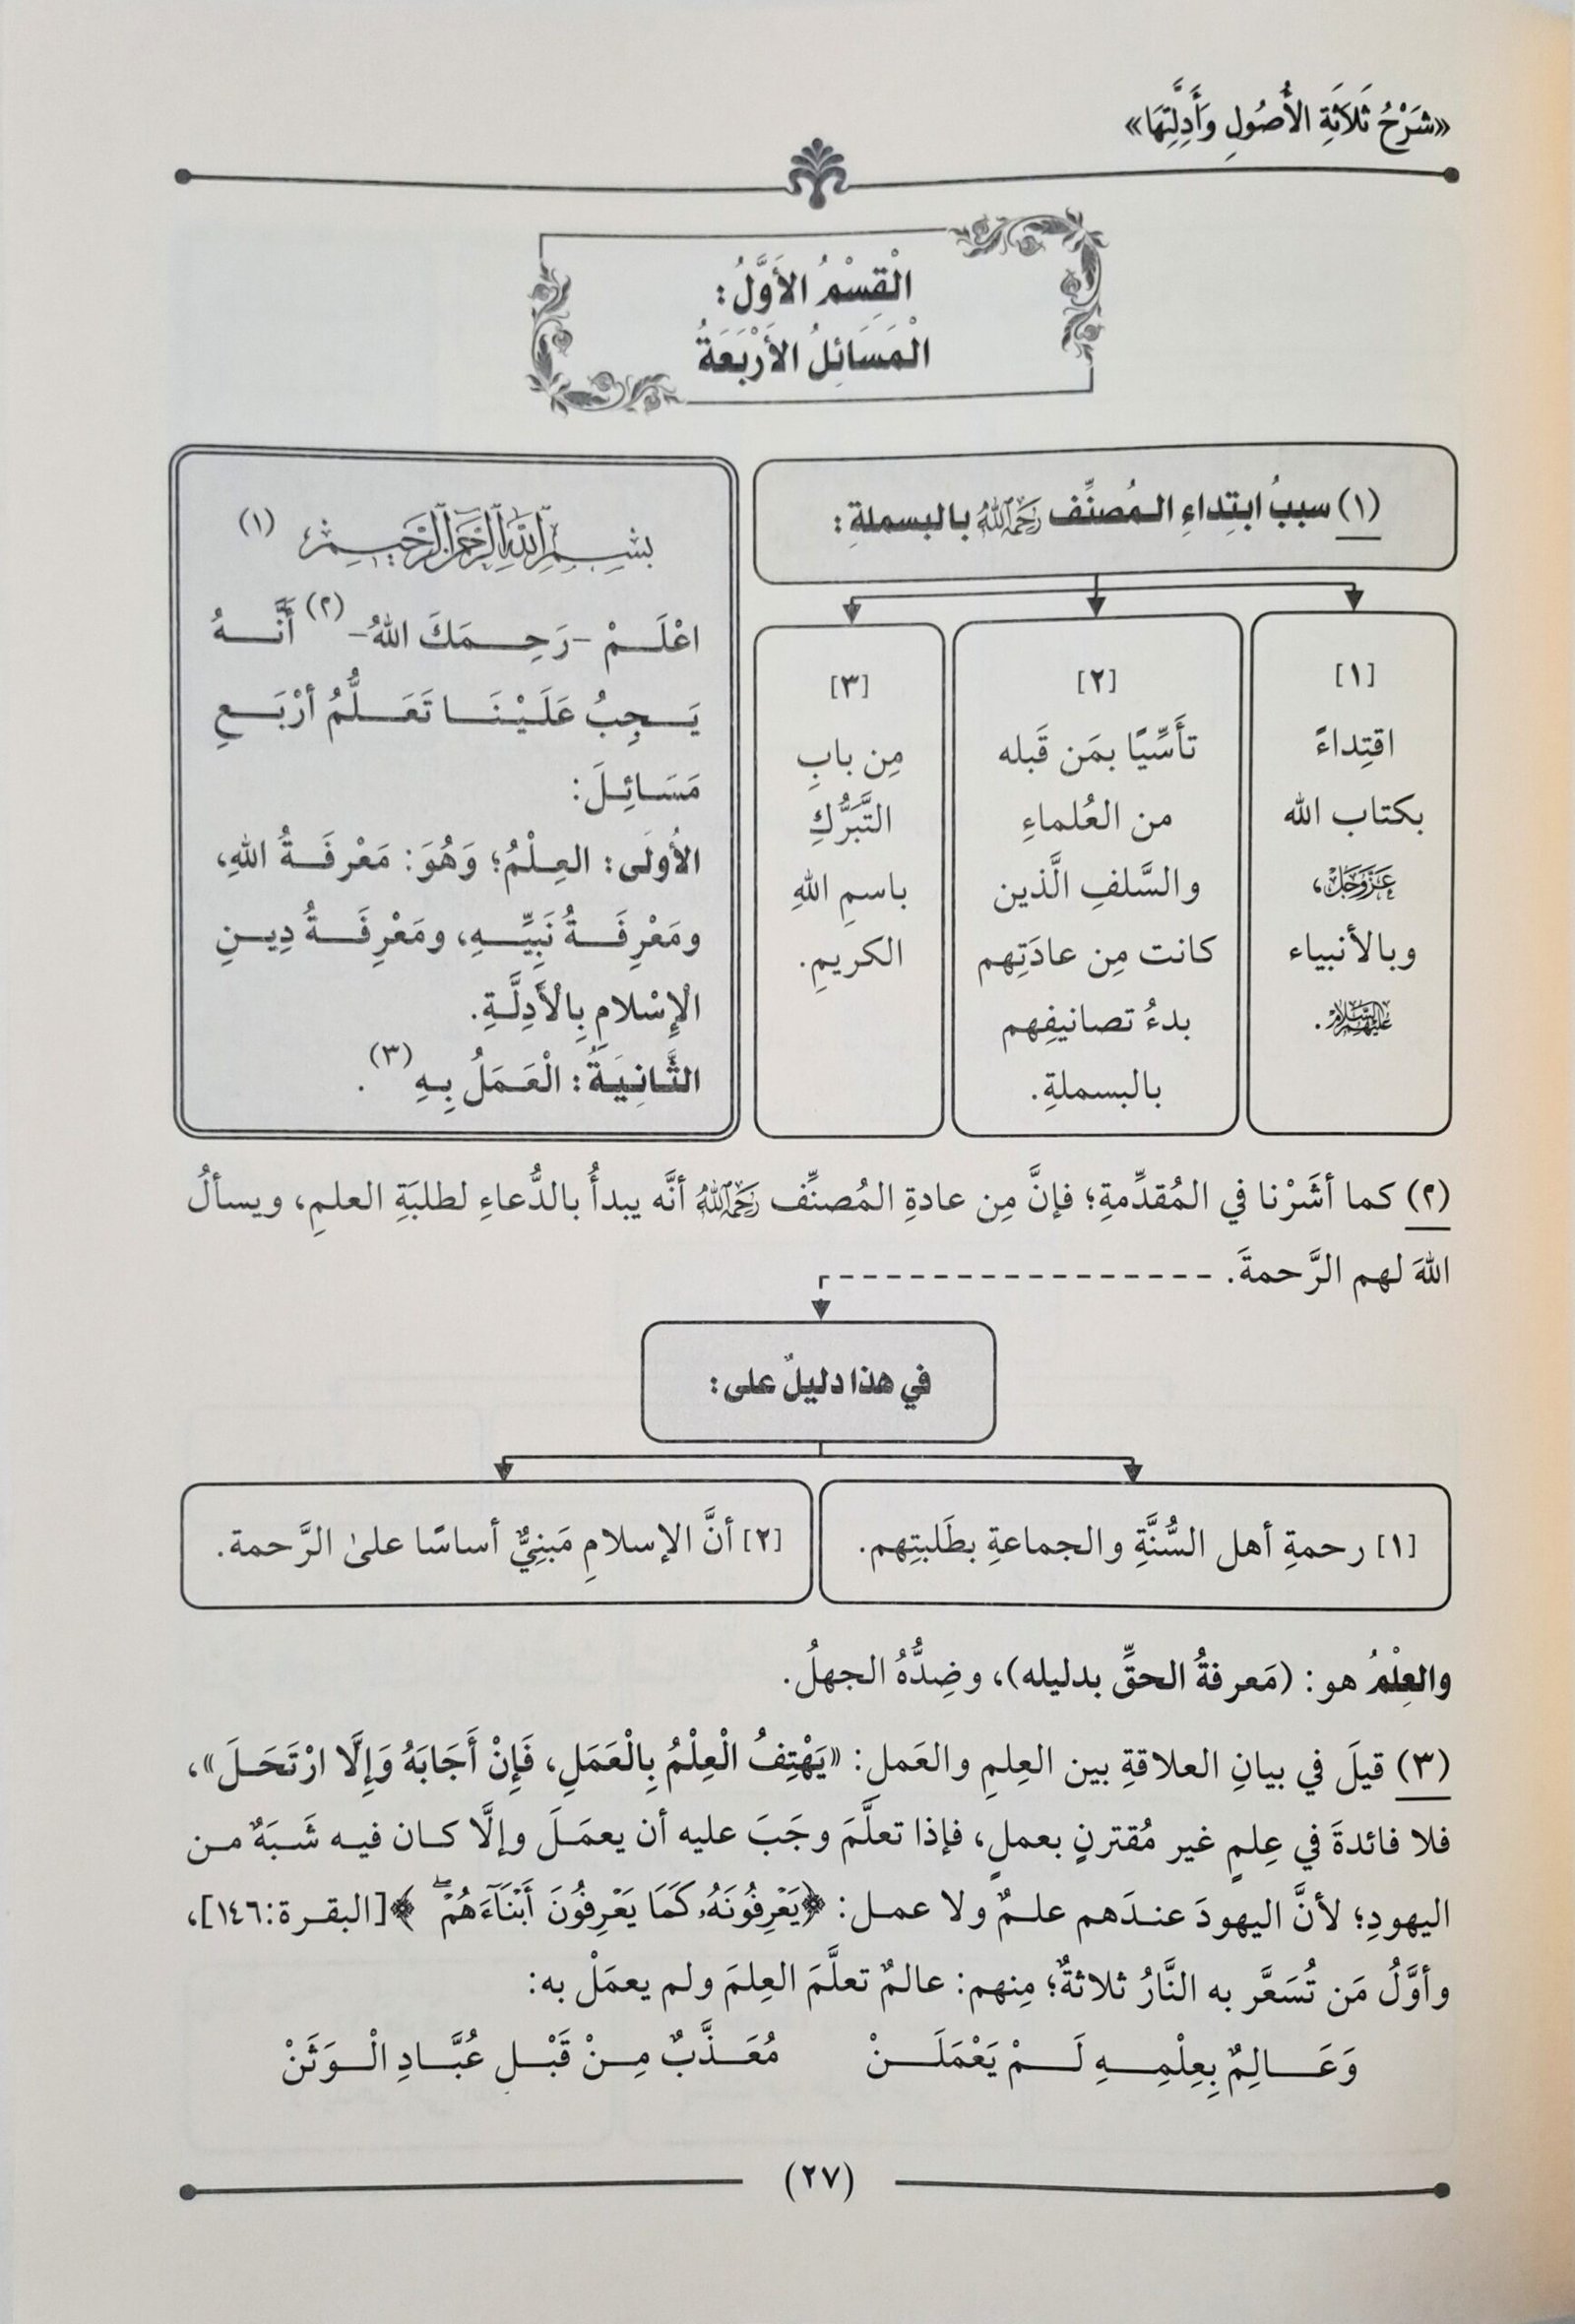 «شَرْحُ ثَلَاثَةِ الأُصُولِ وَأَدِلَّتِهَا»
الْقِسْمُ الأَوَّلُ:
الْمَسَائِلُ الأَرْبَعَةُ
(١) سببُ ابتِداءِ المُصنِّف رَحِمَهُ اللَّهُ بالبسملةِ:
[١]
اقتِداءً
بكتاب الله
عَزَّوَجَلَّ،
وبالأنبياء
عَلَيْهِمُ السَّلَامُ.
[٢]
تأَسِّيًا بمَن قَبله
من العُلماءِ
والسَّلفِ الَّذين
كانت مِن عادَتِهم
بدءُ تصانيفِهم
بالبسملةِ.
[٣]
مِن بابِ
التَّبَرُّكِ
باسمِ اللهِ
الكريمِ.
بِسْمِ اللَّهِ الرَّحْمَنِ الرَّحِيمِ (١)
اعْلَمْ -رَحِمَكَ اللهُ-(٢) أَنَّهُ
يَجِبُ عَلَيْنَا تَعَلُّمُ أرْبَعِ
مَسَائِلَ:
الأُولَى: العِلْمُ؛ وَهُوَ: مَعْرِفَةُ اللهِ،
ومَعْرِفَةُ نَبِيِّهِ، ومَعْرِفَةُ دِينِ
الْإِسْلامِ بِالْأَدِلَّةِ.
الثَّانِيَةُ: الْعَمَلُ بِهِ(٣).
(٢) كما أشَرْنا في المُقدِّمةِ؛ فإنَّ مِن عادةِ المُصنِّف رَحِمَهُ اللَّهُ أنَّه يبدأُ بالدُّعاءِ لطلبَةِ العلمِ، ويسألُ
اللهَ لهم الرَّحمةَ.
في هذا دليلٌ على:
[١] رحمةِ أهل السُّنَّةِ والجماعةِ بطَلبتِهم.
[٢] أنَّ الإسلامِ مَبنِيٌّ أساسًا علىٰ الرَّحمة.
والعِلْمُ هو: (مَعرفةُ الحقِّ بدليله)، وضِدُّهُ الجهلُ.
(٣) قيلَ في بيانِ العلاقةِ بين العِلمِ والعَملِ: «يَهْتِفُ الْعِلْمُ بِالْعَمَلِ، فَإِنْ أَجَابَهُ وَإِلَّا ارْتَحَلَ»،
فلا فائدةَ في عِلمٍ غير مُقترنٍ بعملٍ، فإذا تعلَّمَ وجَبَ عليه أن يعمَلَ وإلَّا كان فيه شَبَهٌ من
اليهودِ؛ لأنَّ اليهودَ عندَهم علمٌ ولا عمل: ﴿يَعْرِفُونَهُۥ كَمَا يَعْرِفُونَ أَبْنَآءَهُمْ ۖ﴾ [البقرة:١٤٦]،
وأوَّلُ مَن تُسَعَّر به النَّارُ ثلاثةٌ؛ مِنهم: عالمٌ تعلَّمَ العِلمَ ولم يعمَلْ به:
وَعَالِمٌ بِعِلْمِهِ لَمْ يَعْمَلَنْ مُعَذَّبٌ مِنْ قَبْلِ عُبَّادِ الْوَثَنْ
(٢٧)